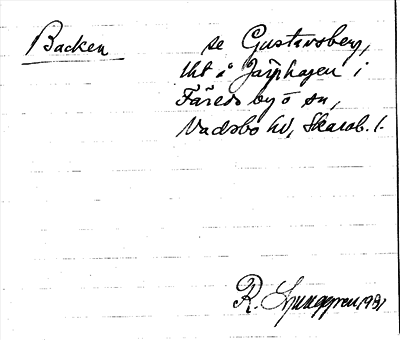 Backen se Gustavsberg,
tht å Järphagen i
Färeds by o sn,
Vadsbo hd, Skarab. l.
R. Ljunggren 1981